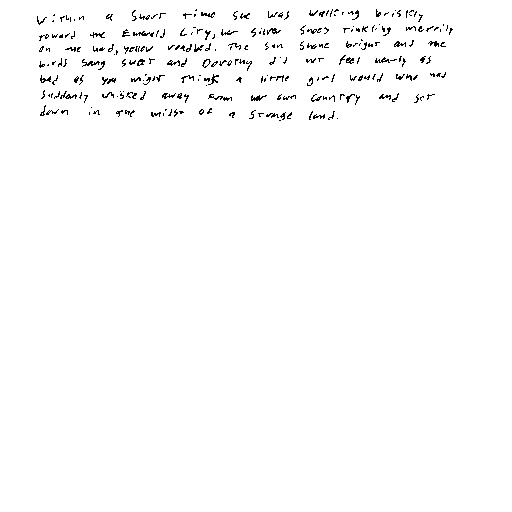 Within a short time she was walking briskly
toward the Emerald City, her silver shoes tinkling merrily
on the hard, yellow roadbed. The sun shone bright and the
birds sang sweet and Dorothy did not feel nearly as
bad as you might think a little girl would who had
suddenly whisked away from her own country and set
down in the midst of a strange land.